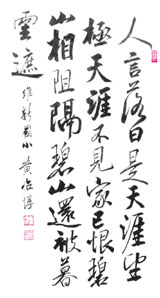 人言落日是天涯望
極天涯不見家已恨碧
山相阻隔碧山還被暮
雲遮 維新國小 黃